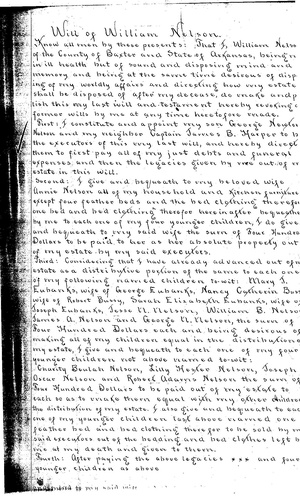 Will of William Nelson.
Know all men by these presents: That I, William Nelso
of the County of Baxter and State of Arkansas, being
in ill health but of sound and disposing mind and
memory and being at the same time desirous of dispo
ing of my worldly affairs and directing how my estate
shall be disposed of after my decease, do make and pub
lish this my last will and testament hereby revoking
former wills by me at any time heretofore made.
First: I constitute and appoint my son George Hexler
Nelson and my neighbor Captain James B. Harper to be
the executors of this my last will, and hereby direct
them to first pay all of my just debts and funeral
expenses, and then the legacies given by me out of
estate in this will.
Second: I give and bequeath to my beloved wife
Annie Nelson all of my household and kitchen furniture
except four feather beds and the bed clothing therefor
one bed and bed clothing therefor hereinafter bequeathe
by me to each one of my four younger children, I do give
and bequeath to my said wife the sum of Four Hundred
Dollars to be paid to her as her absolute property out
of my estate by my said executors.
Third: Considering that I have already advanced out of
estate as a distributive portion of the same to each one
of my following named children to wit: Mary J.
Eubanks, wife of George Eubanks, Nancy Catherin Burry
wife of Robert Burry, Sarah Elizabeth Eubanks, wife of
Joseph Eubanks, Jesse N. Nelson, William B. Nelson
James A. Nelson and George N. Nelson, the sum of
Four Hundred Dollars each and being desirous of
making all of my children equal in the distribution
my estate, I give and bequeath to each one of my four
younger children not above named to wit:
Charity Beulah Nelson, Lilly Hexler Nelson, Joseph
Oscar Nelson and Robert Adams Nelson the sum of
Four Hundred Dollars to be paid out of my estate to
each so as to make them equal with my other children
the distribution of my estate. I also give and bequeath to each
one of my younger children last above named one
feather bed and bed clothing therefor to be sold by
said executors out of the bedding and bed clothes left by
me at my death and given to them.
Fourth: After paying the above legacies *** and four
younger children as above
to my said wife